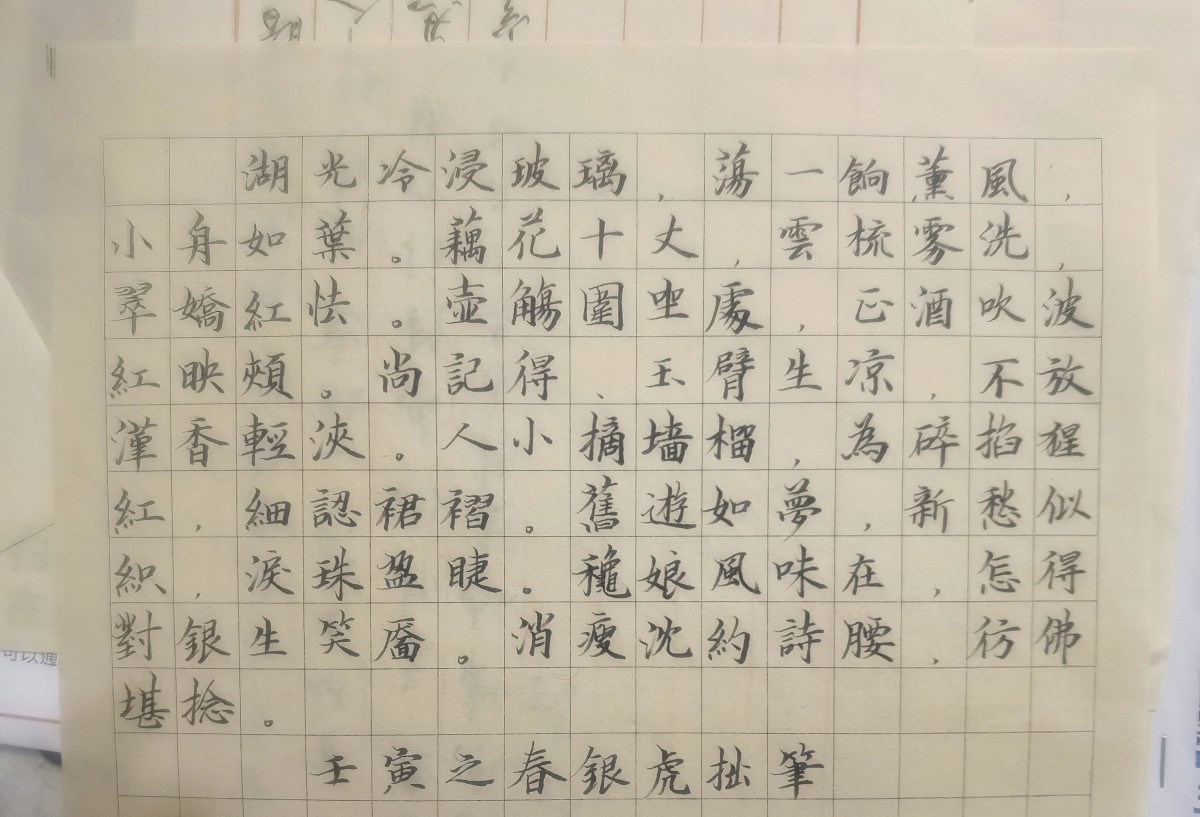 湖光冷浸玻璃，蕩一餉薰風，
小舟如葉。藕花十丈，雲梳霧洗，
翠嬌紅怯。壺觴圍坐處，正酒吹波
紅映頰。尚記得、玉臂生凉，不放
漢香輕浹。人小摘墻榴，為碎掐猩
紅，細認裙褶。舊遊如夢，新愁似
織，淚珠盈睫。秾娘風味在，怎得
對銀生笑靨。消瘦沈約詩腰，彷佛
堪捻。
壬寅之春銀虎拙筆
可以通